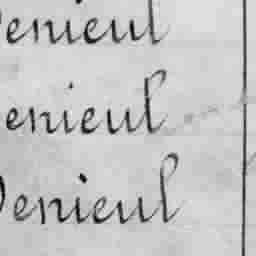 Denieul
Denieul
Denieul